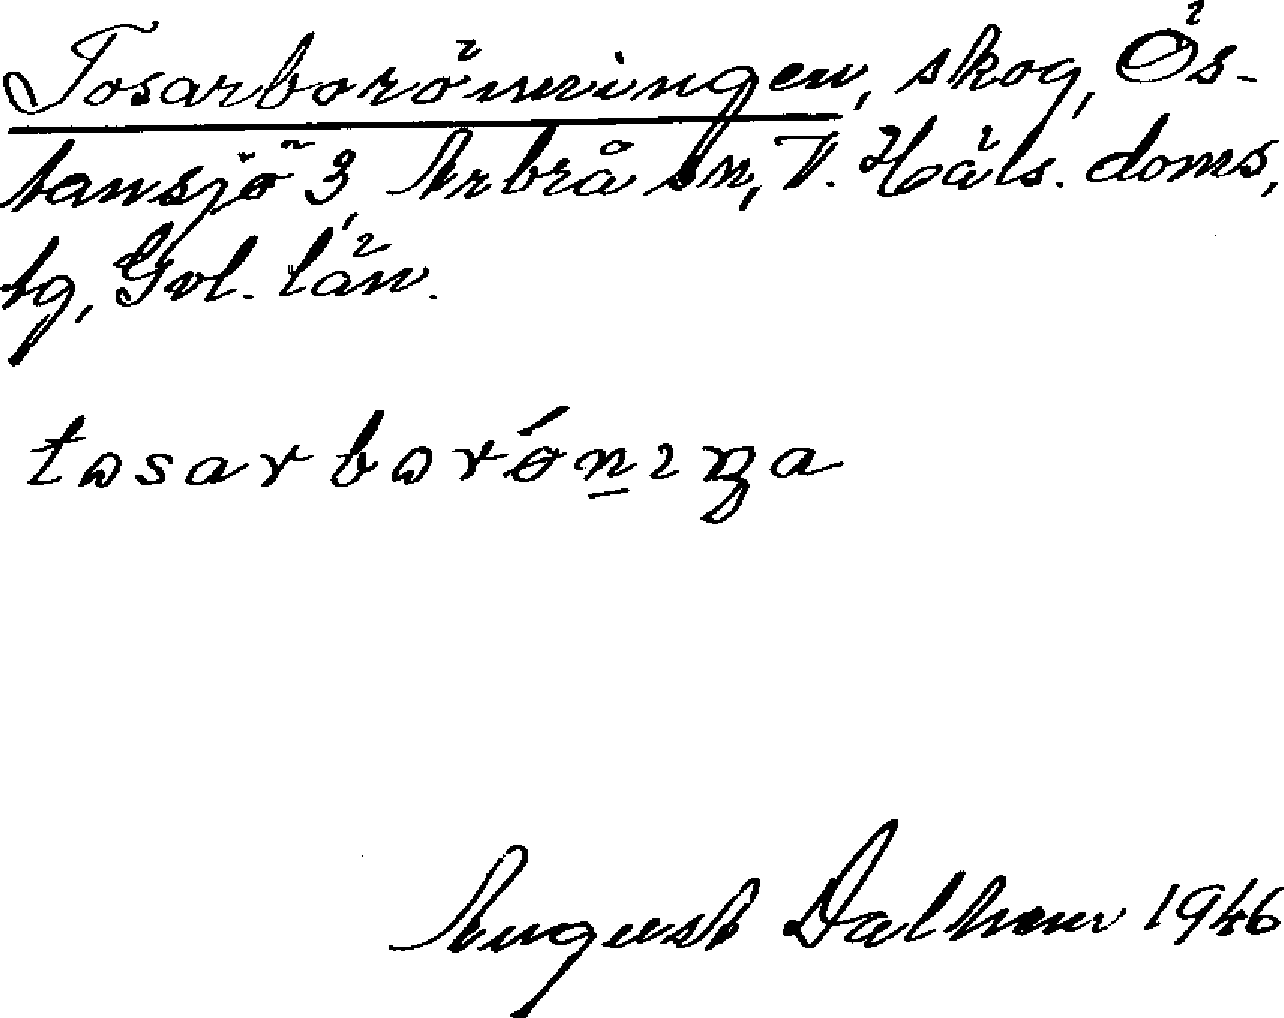 Tosarborönningen, skog, Ös-
tansjö 3, Arbrå sn, V. Häls. doms,
tg, Gvl. län.
tosarborónıŋa
August Dalhem 1946